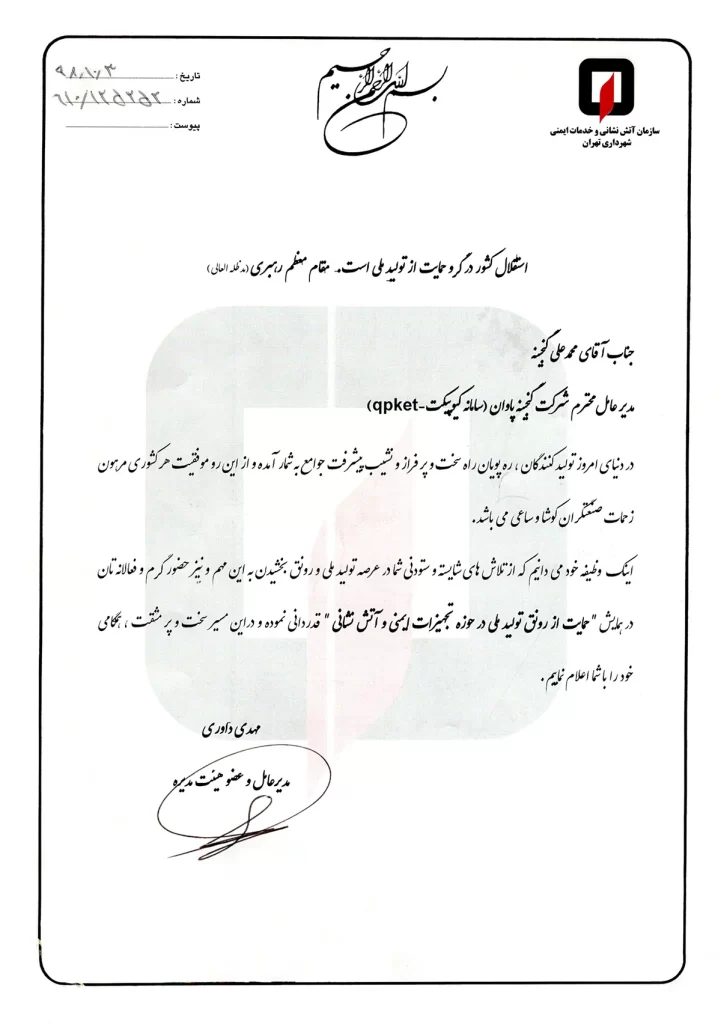 بسم الله الرحمن الرحیم
سازمان آتش نشانی و خدمات ایمنی
شهرداری تهران
تاریخ : ۹۸/۱۰/۳
شماره : ۶۱۰/۱۲۵۲۵۲
پیوست :
استقلال کشور در گرو حمایت از تولید ملی است. مقام معظم رهبری (مد ظله العالی)
جناب آقای محمد علی گنجینه
مدیر عامل محترم شرکت گنجینه پاوان (سامانه کیوپیکت-qpket)
در دنیای امروز تولید کنندگان ، ره پویان راه سخت و پر فراز و نشیب پیشرفت جوامع به شمار آمده و از این رو موفقیت هر کشوری مرهون
زحمات صنعتگران کوشا و ساعی می باشد.
اینک وظیفه خود می دانیم که از تلاش های شایسته و ستودنی شما در عرصه تولید ملی و رونق بخشیدن به این مهم و نیز حضور گرم و فعالانه تان
در همایش "حمایت از رونق تولید ملی در حوزه تجهیزات ایمنی و آتش نشانی" قدردانی نموده و دراین مسیر سخت و پر مشقت ، همگامی
خود را باشما اعلام نماییم.
مهدی داوری
مدیرعامل و عضو هیئت مدیره